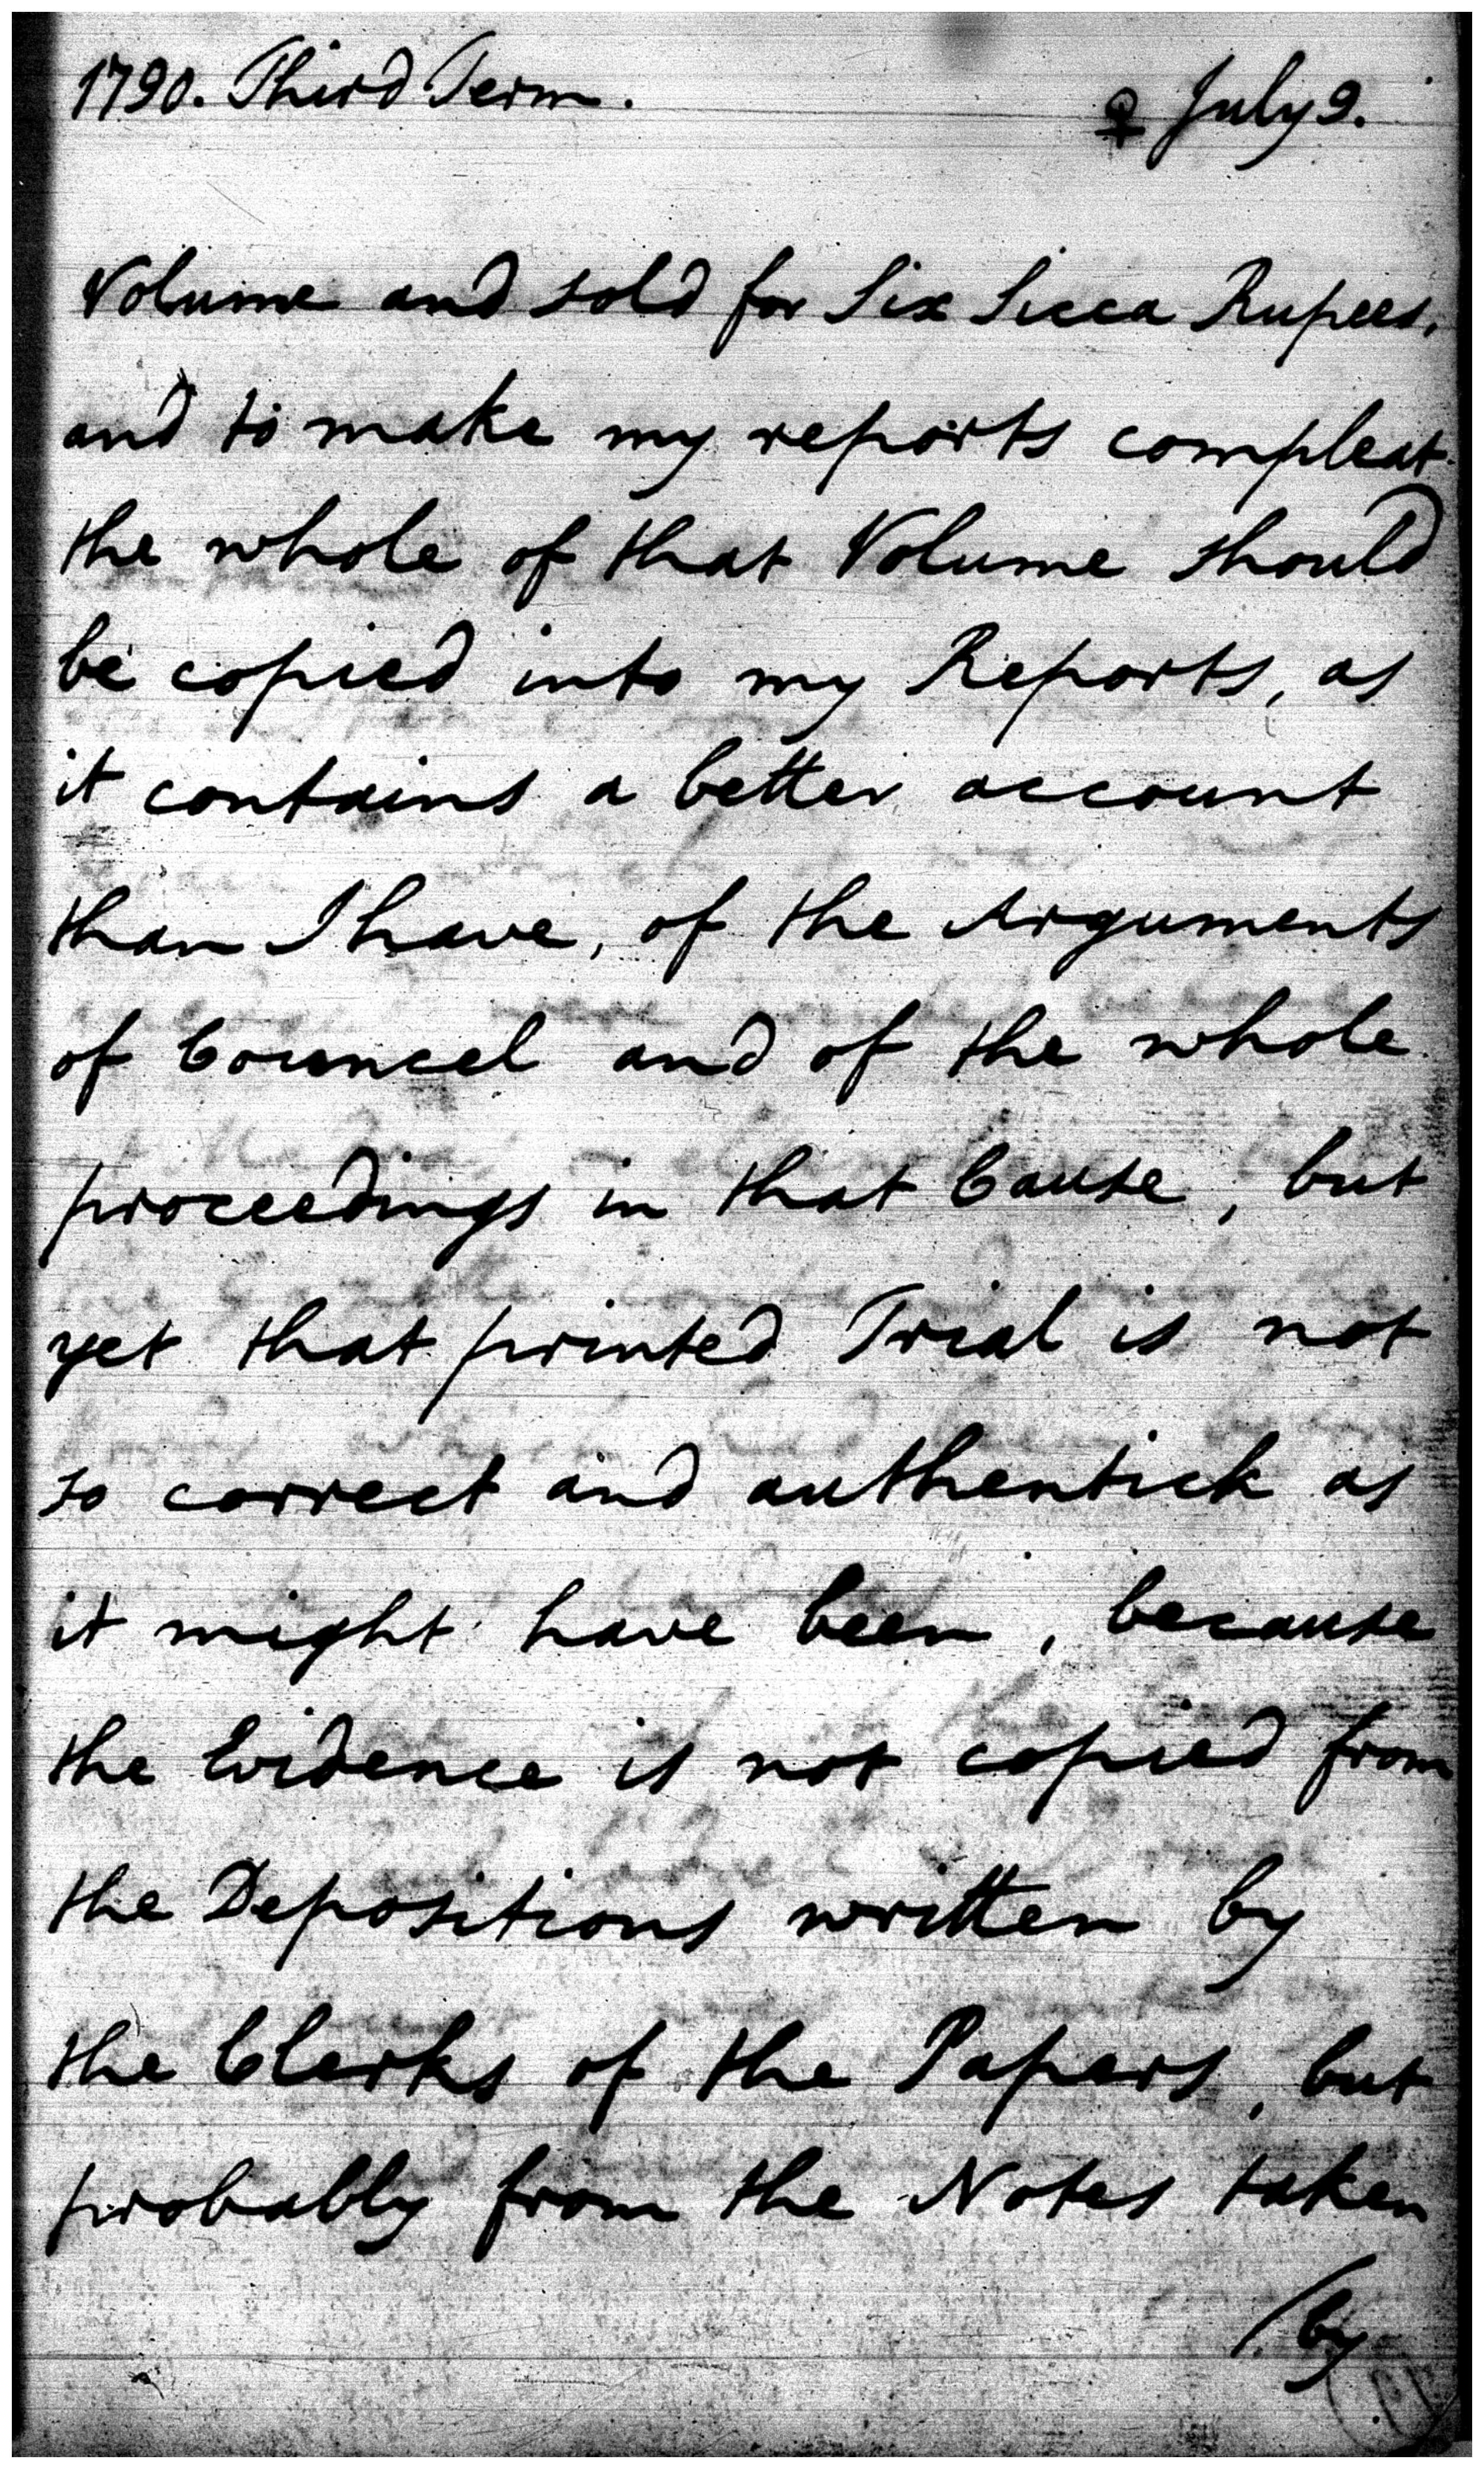 1790. Third Term. ♀ July 9.
Volume and sold for Six Sicca Rupees,
and to make my reports compleat
the whole of that Volume should
be copied into my Reports, as
it contains a better account
than I have, of the Arguments
of Councel and of the whole
proceedings in that Cause, but
yet that printed Trial is not
so correct and authentick as
it might have been, because
the Evidence is not copied from
the Depositions written by
the Clerks of the Papers, but
probably from the Notes taken
/by